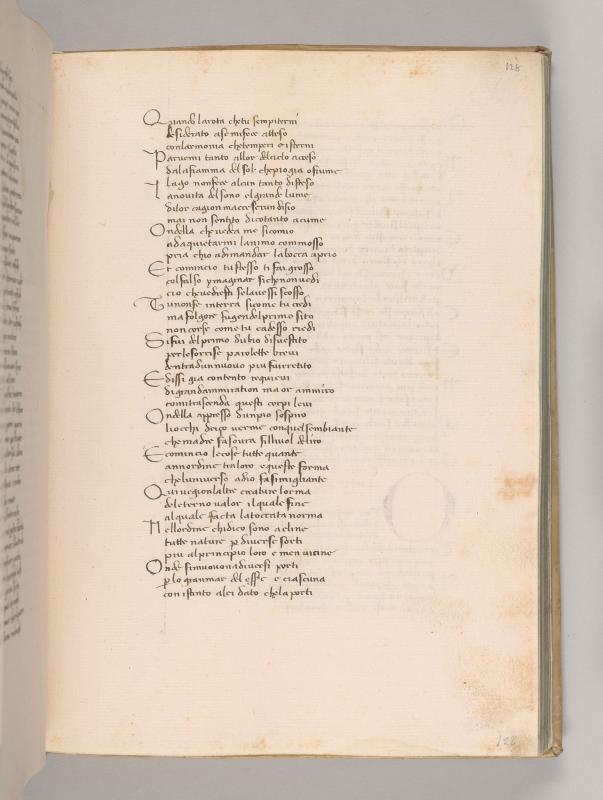 128
Quando larota chetu sempiterni
desiderato ase mifece atteso
conlarmonia chetemperi et discerni
Paruemi tanto allor delcielo acceso
dalafiamma del sol che piogia o fiume
lago nonfece alcun tanto disteso
La nouita del sono el grande lume
dilor cagion macceser un disio
mai non sentito dicotanto acume
Ondella che uedea me sicomio
ad aquietarmi lanimo commosso
pria chio adimandar la bocca aprio
Et comincio tu stesso ti fai grosso
col falso ymaginar siche non uedi
cio che uedresti selauessi scosso
Tu nonse interra si come tu credi
ma folgore fugendel primo sito
non corse come tu cadesso riedi
Si fui del primo dubio disuestito
per lesorrise parolette breui
dentradun nuouo piu fu irretito
E dissi gia contento requieui
di grandammiration ma or ammiro
comi trascenda questi corpi leui
Ondella appresso dunpio sospiro
liocchi driço uerme conquel sembiante
che madre fa soura figliuol deliro
E comincio lecose tutte quante
annordine traloro e queste forma
chel uniuerso adio fa simigliante
Qui uegionlaltre creature lorma
deleterno ualor il quale fine
al quale facta latoccata norma
Nellordine chidico sono acline
tutte nature per diuerse sorti
piu al principio loro e men uicine
Onde simuouono adiuersi porti
per lo gran mar del essere e ciascuna
con istinto alei dato chela porti
128